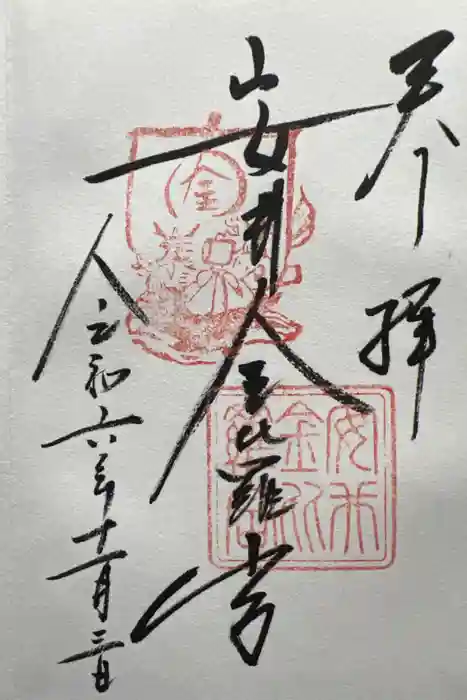 奉拝
安井金比羅宮
令和六年十一月三日
金
安井
金比
羅宮